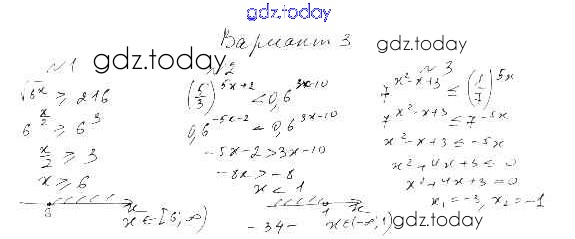 gdz.today
Вариант 3
gdz.today
№1
gdz.today
√6^x ≥ 216
6^(x/2) ≥ 6^3
x/2 ≥ 3
x ≥ 6
x ∈ [6; ∞)
№2
(5/3)^(5x+2) < 0,6^(3x-10)
0,6^(-5x-2) < 0,6^(3x-10)
-5x-2 > 3x-10
-8x > -8
x < 1
1
x
x ∈ (-∞; 1)
№3
7^(x²-x+3) ≤ (1/7)^(5x)
7^(x²-x+3) ≤ 7^(-5x)
x²-x+3 ≤ -5x
x²+4x+3 ≤ 0
x²+4x+3=0
x₁=-3, x₂=-1
gdz.today
-34-